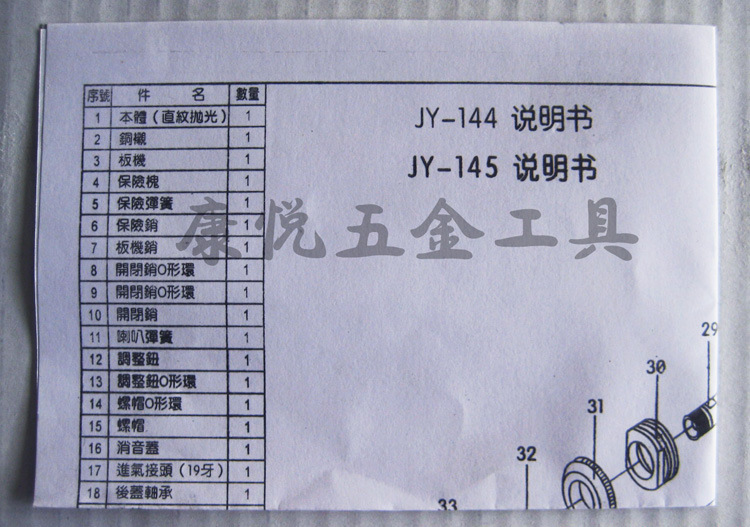 JY-144 说明书
JY-145 说明书
序號 件 名 數量
1 本體（直紋拋光） 1
2 銅襯 1
3 板機 1
4 保險槐 1
5 保險彈簧 1
6 保險銷 1
7 板機銷 1
8 開閉銷O形環 1
9 開閉銷O形環 1
10 開閉銷 1
11 喇叭彈簧 1
12 調整鈕 1
13 調整鈕O形環 1
14 螺帽O形環 1
15 螺帽 1
16 消音蓋 1
17 進氣接頭（19牙） 1
18 後蓋軸承 1
康悦五金工具
29
30
31
32
33